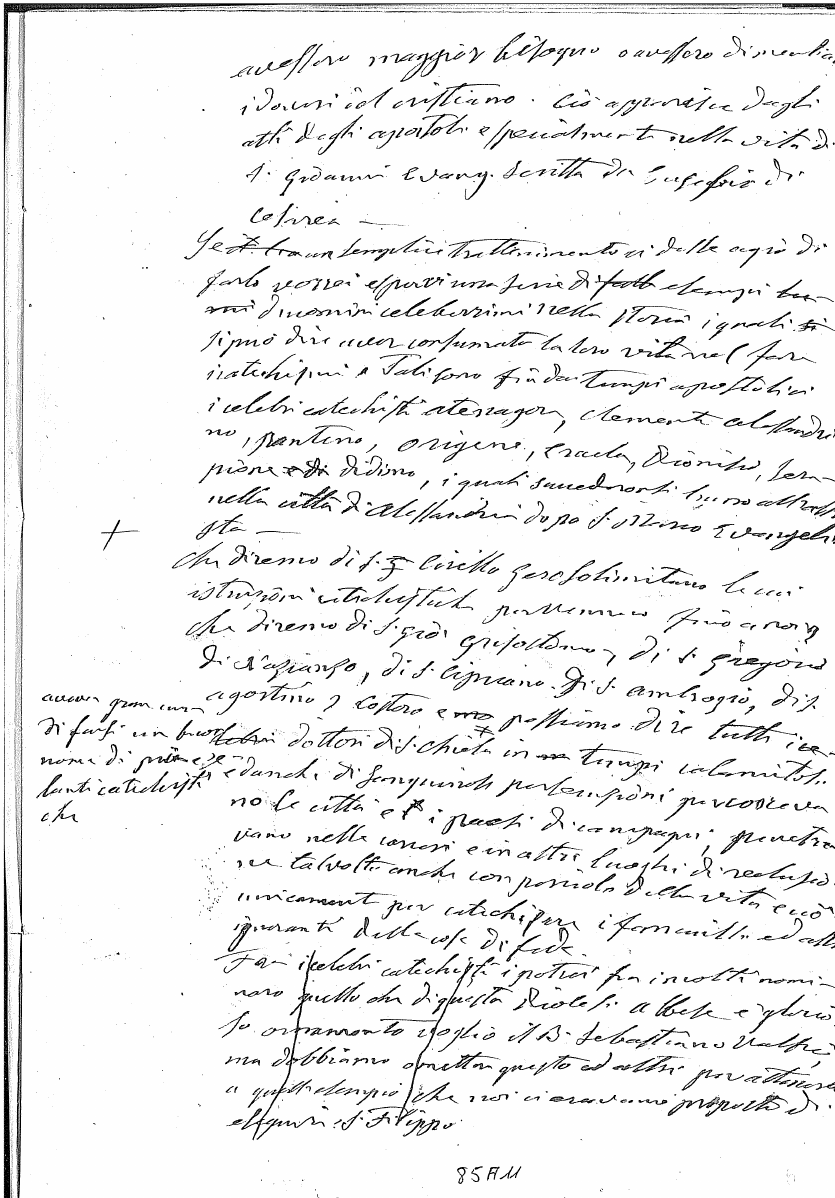 avessero maggior bisogno o avessero dimentica
i doveri del cristiano. Ciò apparisce dagli
atti degli apostoli e specialmente nella vita di
S. Giovanni Evang. scritta da Eusebio di
Cesarea —
Se un semplice trattenimento ci desse agio di
farlo vorrei esporvi una serie di esempi
di uomini celeberrimi nella storia i quali si
può dire aver consumata la loro vita nel fare
i catechismi e Tali sono fin dai tempi apostolici
i celebri catechisti atenagora, clemente alessandri
no, panteno, origene, eracla, Dionisio, Sera-
pione didimo, i quali succedevansi l'uno all'altro
nella città di Alessandria dopo S. Marco Evangeli
sta —
Che diremo di S. Cirillo gerosolimitano le cui
istruzioni catechistiche pervennero fino a noi
che diremo di S. Gio grisostomo, di S. gregorio
di Nazianzo, di S. Cipriano di S. ambrogio, di S.
agostino costoro possiamo dire tutti i ce-
lebri dottori di S. chiesa in tempi calamitosi
avevan gran cura
di farsi un buon
nome di
zelanti catechisti
che
ed anche di sanguinose persecuzioni percorreva
no le città e i paesi di campagna, penetra
vano nelle carceri e in altri luoghi di reclusio
ne talvolta anche con pericolo della vita e ciò
unicamente per catechizzare i fanciulli ed altri
ignoranti delle cose di fede.
Fra i celebri catechisti i potrei fra i molti nomi-
nare quello che di questa Diocesi albese è glorio
so ornamento voglio il B. Sebastiano Valfrè,
ma dobbiamo omettere questo ed altri per attenerci
a quell'esempio che noi ci eravamo proposto di
eseguire S. Filippo.
85 A 11